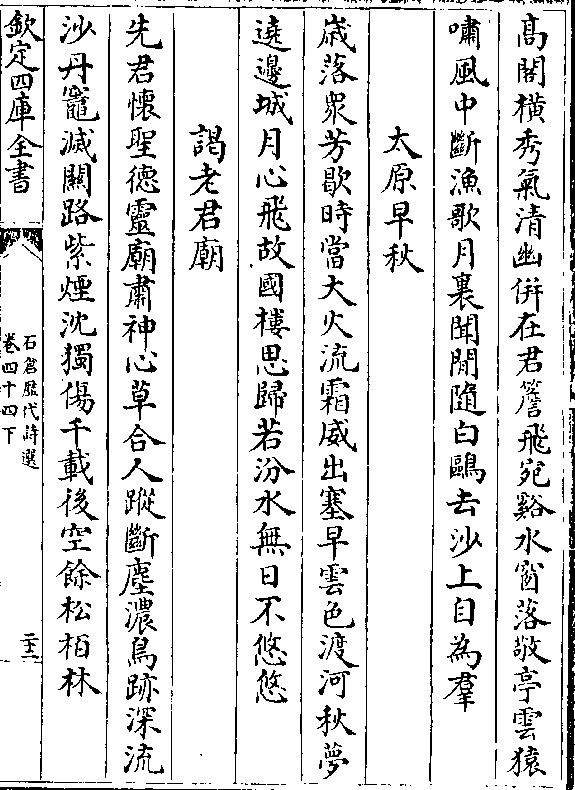 高閣橫秀氣清幽併在君簷飛宛谿水窗落敬亭雲猿
嘯風中斷漁歌月裏聞閒隨白鷗去沙上自為羣
太原早秋
歲落衆芳歇時當大火流霜威出塞早雲色渡河秋夢
遶邊城月心飛故國樓思歸若汾水無日不悠悠
謁老君廟
先君懷聖德靈廟肅神心草合人蹤斷塵濃鳥跡深流
沙丹竈滅關路紫煙沈獨傷千載後空餘松栢林
欽定四庫全書
石倉歷代詩選
卷四十四下
二十三